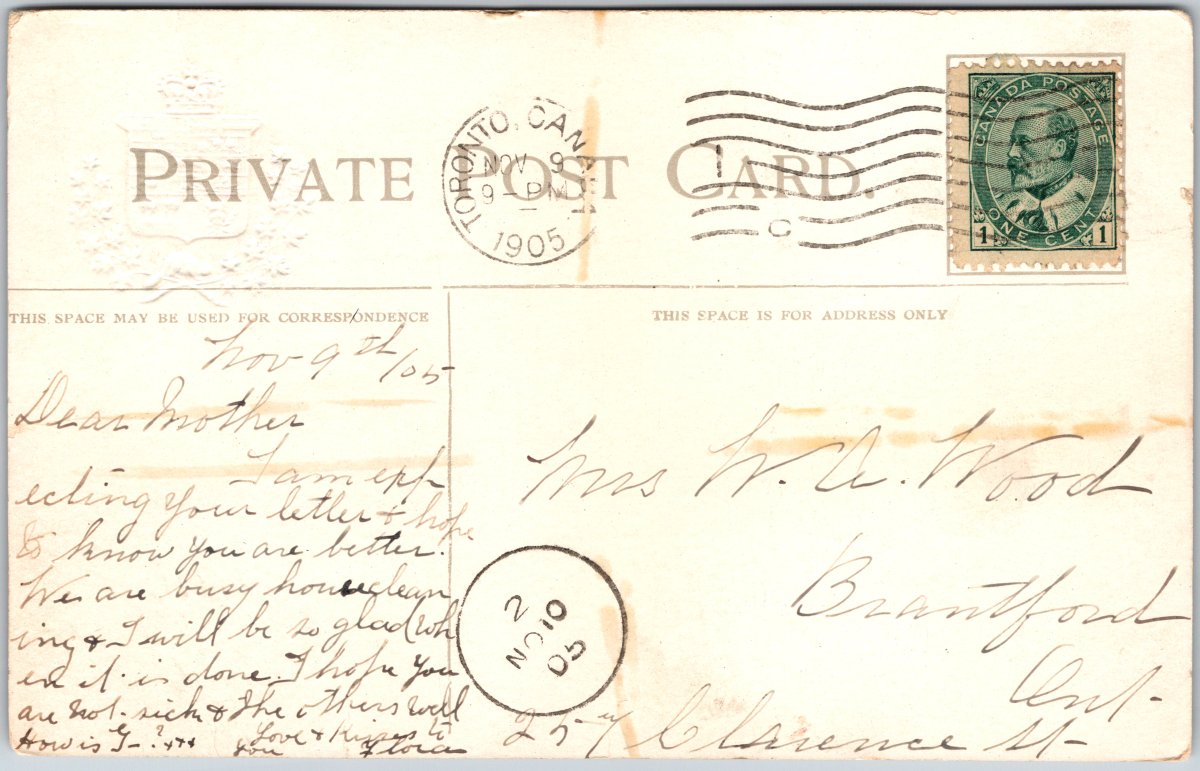 PRIVATE POST CARD.
TORONTO, CANADA
NOV 9
9 - PM
1905
1
C
CANADA POSTAGE
ONE CENT
1 1
THIS SPACE MAY BE USED FOR CORRESPONDENCE
Nov 9th/05
Dear Mother
I am exp
ecting your letter & hope
to know you are better.
We are busy houseclean
ing & I will be so glad wh
en it is done. I hope you
are not sick & the others well
How is G-? +++ Love & Kisses to
you Flora
THIS SPACE IS FOR ADDRESS ONLY
Mrs W. A. Wood
Brantford
Ont-
25 Clarence St-
2
NO 10
05